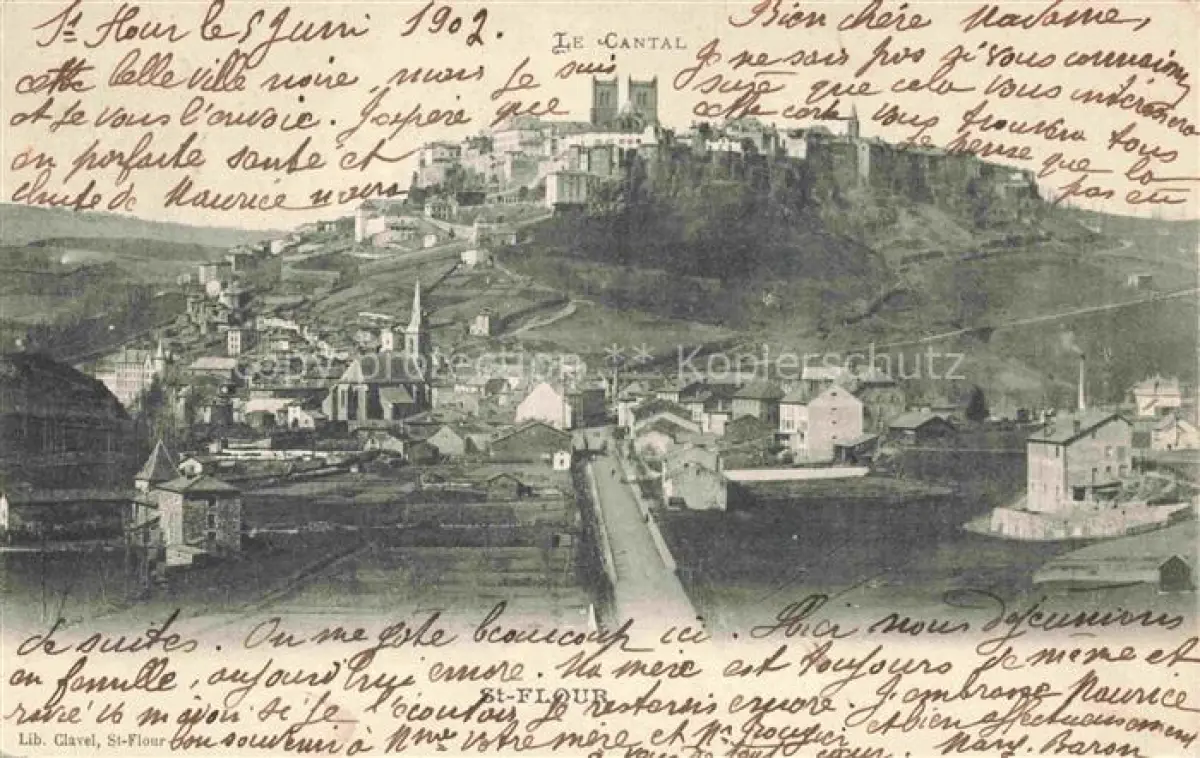 St Flour le 5 Juin 1902.
LE CANTAL
Bien chère Madame,
Je ne sais pas si vous connaissez
cette belle ville noire, mais je suis
sûre que cela vous intéressera
et je vous l'envoie. J'espère que
cette carte vous trouvera tous
en parfaite santé et
je pense que la
chute de Maurice n'aura
pas eu
copyprotection ** Kopierschutz
de suites. On me gâte beaucoup ici. Hier nous déjeunions
en famille, aujourd'hui encore. Ma mère est toujours de même et
ST-FLOUR
si je l'écoutais je resterais encore. J'embrasse Maurice
Lib. Clavel, St-Flour
bon souvenir à Mme votre mère et Mr
et bien affectueusement
à vous de tout cœur.
Marg. Baron